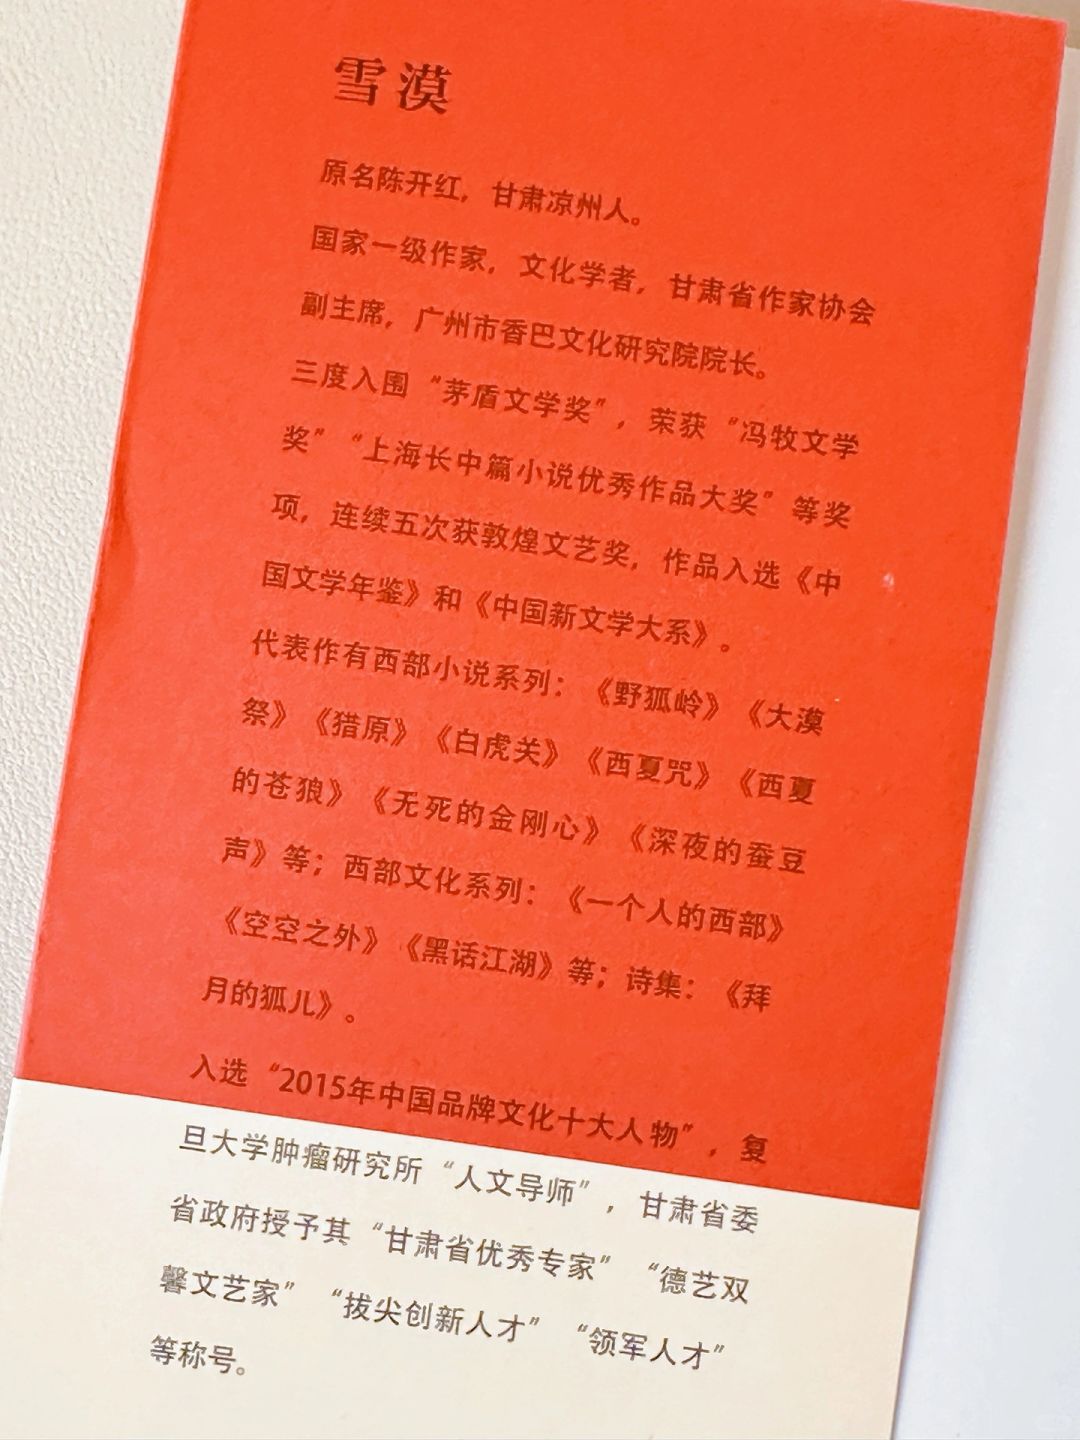 雪漠
原名陈开红，甘肃凉州人。
国家一级作家，文化学者，甘肃省作家协会
副主席，广州市香巴文化研究院院长。
三度入围“茅盾文学奖”，荣获“冯牧文学
奖”“上海长中篇小说优秀作品大奖”等奖
项，连续五次获敦煌文艺奖，作品入选《中
国文学年鉴》和《中国新文学大系》。
代表作有西部小说系列：《野狐岭》《大漠
祭》《猎原》《白虎关》《西夏咒》《西夏
的苍狼》《无死的金刚心》《深夜的蚕豆
声》等；西部文化系列：《一个人的西部》
《空空之外》《黑话江湖》等；诗集：《拜
月的狐儿》。
入选“2015年中国品牌文化十大人物”，复
旦大学肿瘤研究所“人文导师”，甘肃省委
省政府授予其“甘肃省优秀专家”“德艺双
馨文艺家”“拔尖创新人才”“领军人才”
等称号。